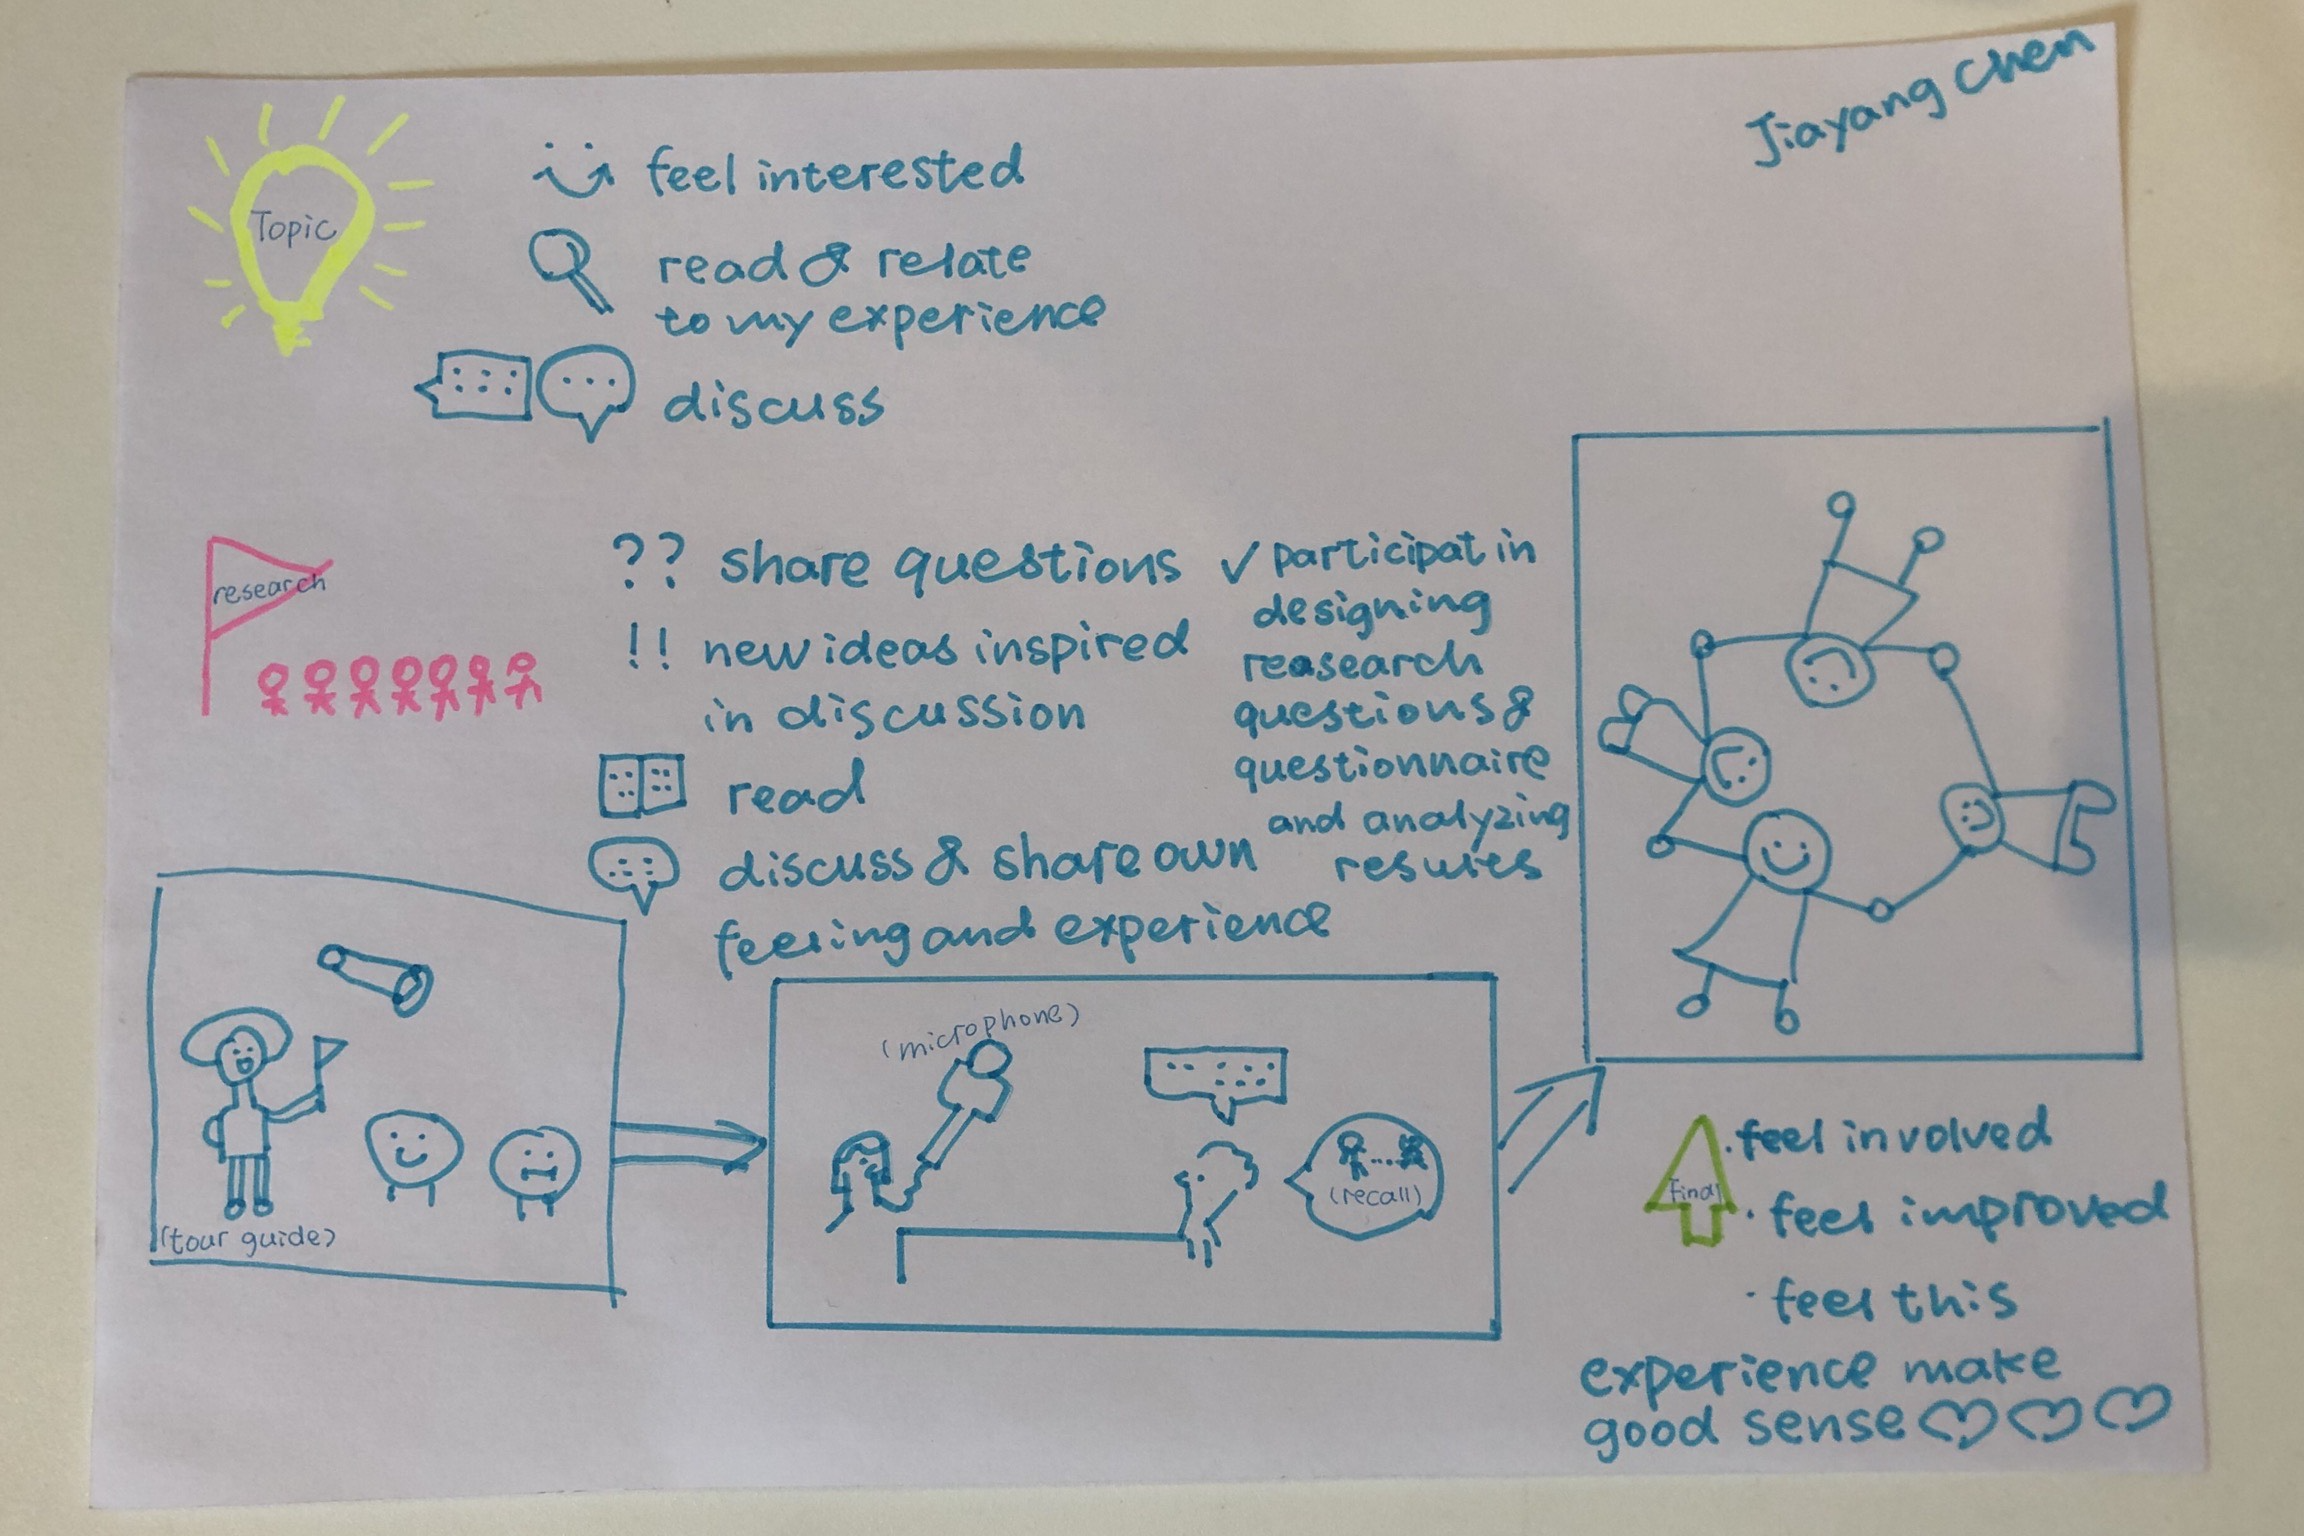 Jiayang Chen
Topic
feel interested
read & relate
to my experience
discuss
research
?? share questions
!! new ideas inspired
in discussion
read
discuss & share own
feeling and experience
✓ participat in
designing
reasearch
questions &
questionnaire
and analyzing
results
(tour guide)
(microphone)
(recall)
final
· feel involved
· feel improved
· feel this
experience make
good sense ♡♡♡